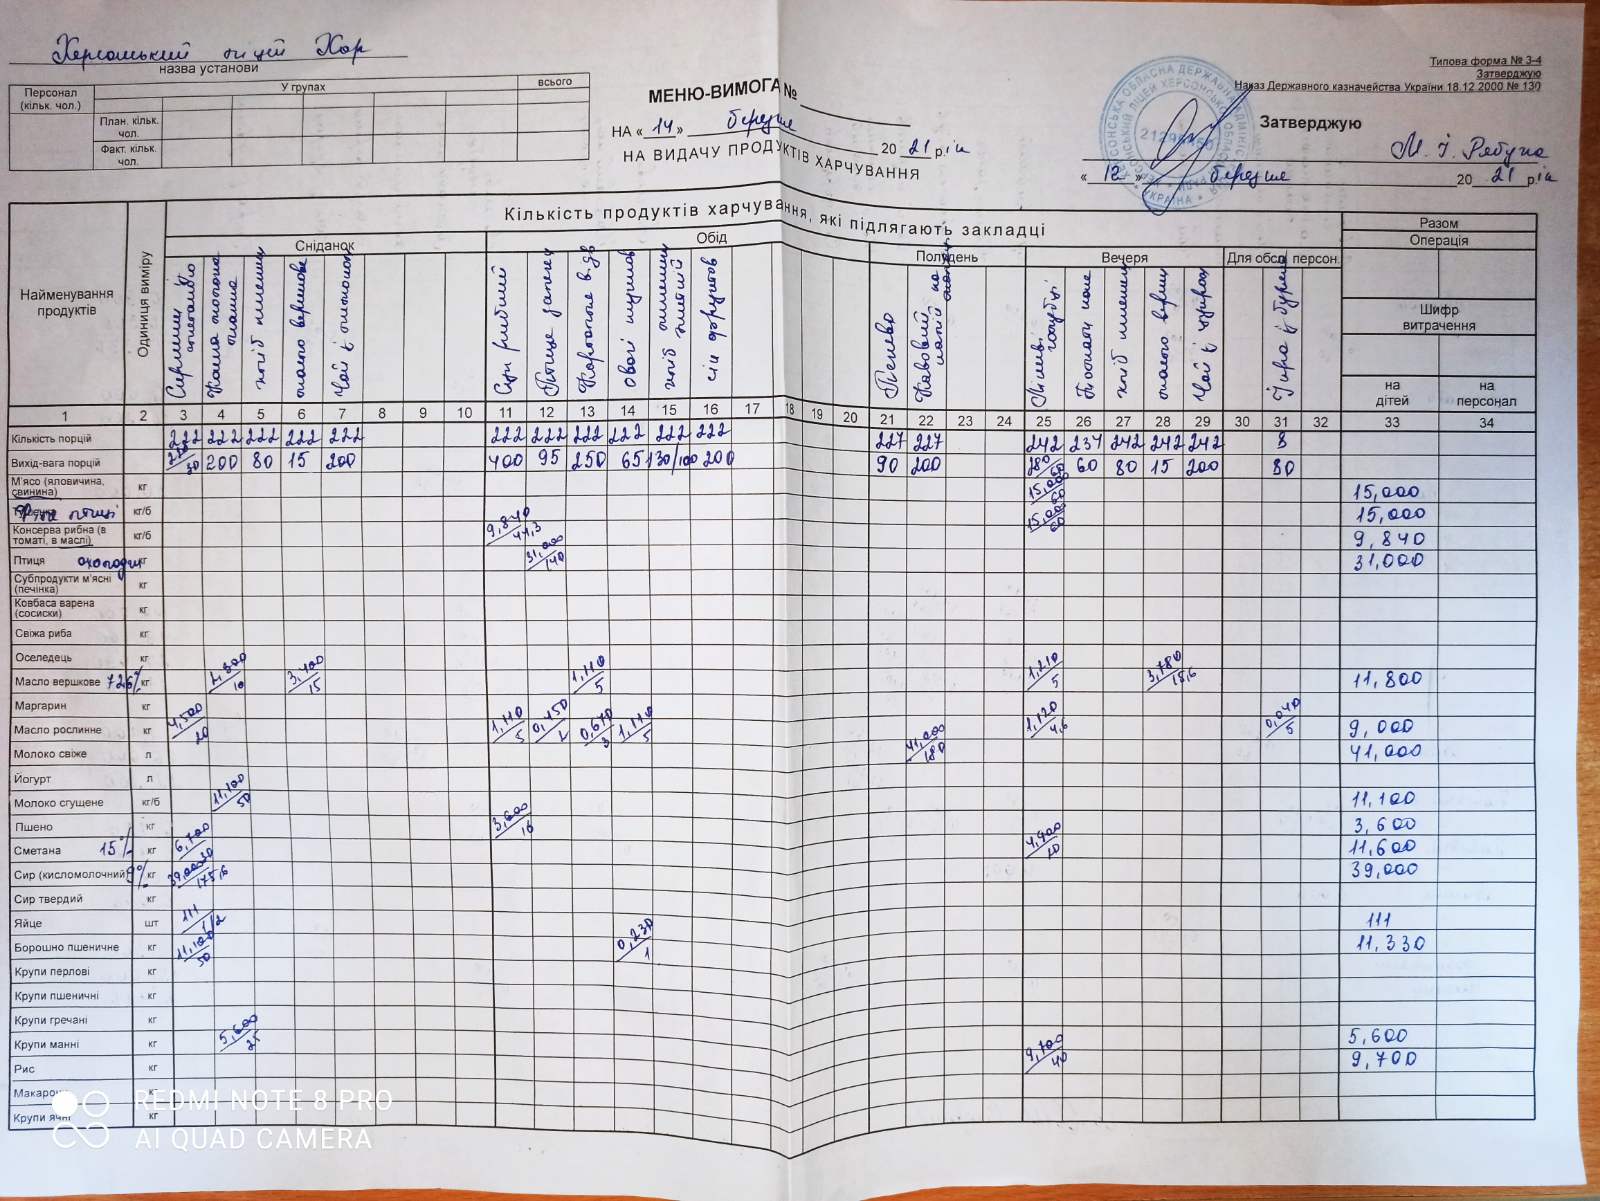 Херсонський ліцей Хор
назва установи
Персонал (кільк. чол.) У групах всього
План. кільк. чол.
Факт. кільк. чол.
МЕНЮ-ВИМОГА №
НА «14» березня 2021 рік
НА ВИДАЧУ ПРОДУКТІВ ХАРЧУВАННЯ
Типова форма № З-4
Затверджую
Наказ Державного казначейства України 18.12.2000 № 130
Затверджую
«12» березня 2021 рік
Кількість продуктів харчування, які підлягають закладці
Найменування продуктів Одиниця виміру Сніданок Обід Полудень Вечеря Для обсл персон. Разом
Операція
Шифр витрачення
на дітей на персонал
1 2 3 4 5 6 7 8 9 10 11 12 13 14 15 16 17 18 19 20 21 22 23 24 25 26 27 28 29 30 31 32 33 34
Кількість порцій 222 222 222 222 222 222 222 222 222 222 222 227 227 242 237 242 242 242 8
Вихід-вага порцій 200 80 15 200 400 95 250 65 130/100 200 90 200 60 80 15 200 80
М'ясо (яловичина, свинина) кг 15,000/60 15,000
птиці кг/б 15,000/60 15,000
Консерва рибна (в томаті, в маслі) кг/б 9,840/44,3 9,840
Птиця кг 31,000/140 31,000
Субпродукти м'ясні (печінка) кг
Ковбаса варена (сосиски) кг
Свіжа риба кг
Оселедець кг
Масло вершкове 72,6% кг 3,400/15 1,110/5 1,210/5 3,780/15,6 11,800
Маргарин кг
Масло рослинне кг 4,500/20 1,110/5 0,450/2 0,670/3 1,110/5 1,120/4,6 0,040/5 9,000
Молоко свіже л 41,000/180 41,000
Йогурт л
Молоко сгущене кг/б 11,100/50 11,100
Пшено кг 3,600/16 3,600
Сметана 15% кг 6,700/30 4,900/20 11,600
Сир (кисломолочний) 9% кг 39,000/175,6 39,000
Сир твердий кг
Яйце шт 111/1/2 111
Борошно пшеничне кг 11,100/50 0,230/1 11,330
Крупи перлові кг
Крупи пшеничні кг
Крупи гречані кг
Крупи манні кг 5,600/25 5,600
Рис кг 9,700/40 9,700
Макарон кг
Крупи ячні кг
REDMI NOTE 8 PRO
AI QUAD CAMERA